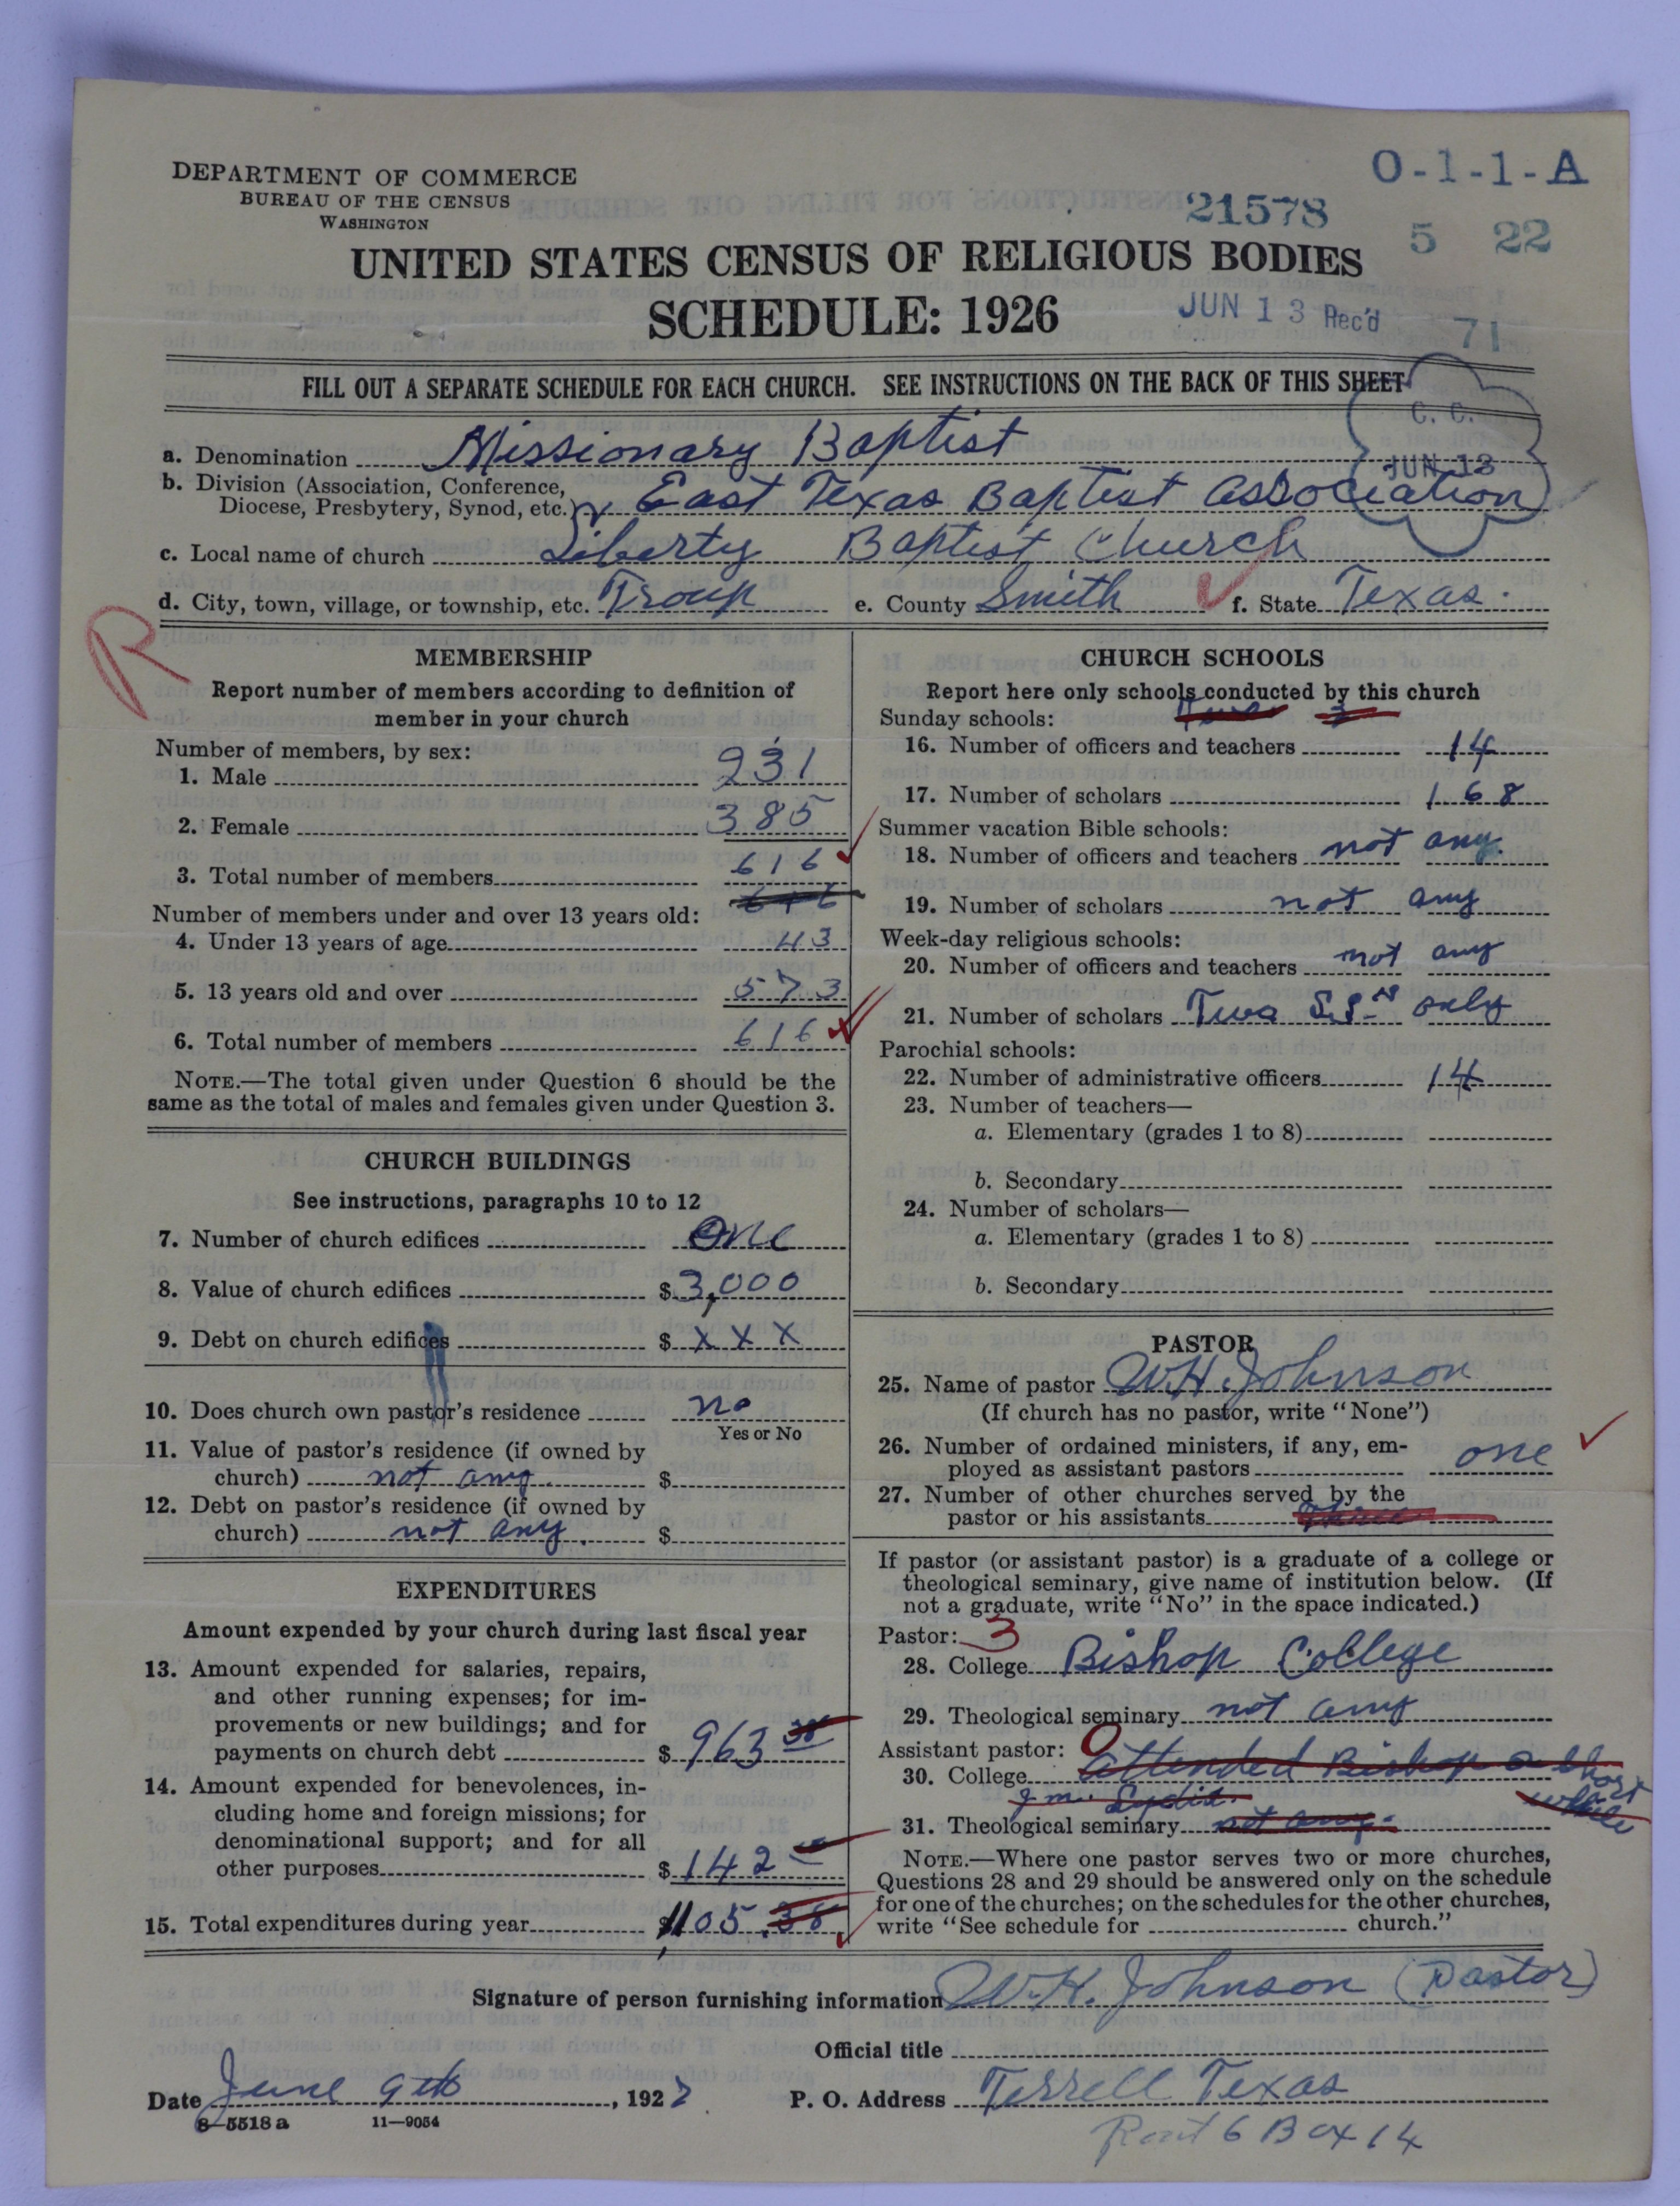 DEPARTMENT OF COMMERCE
BUREAU OF THE CENSUS
WASHINGTON
O-1-1-A
21578
5 22
UNITED STATES CENSUS OF RELIGIOUS BODIES
SCHEDULE: 1926
JUN 13 Rec'd
71
FILL OUT A SEPARATE SCHEDULE FOR EACH CHURCH. SEE INSTRUCTIONS ON THE BACK OF THIS SHEET
C. C.
JUN 13
a. Denomination Missionary Baptist
b. Division (Association, Conference, Diocese, Presbytery, Synod, etc.) East Texas Baptist Association
c. Local name of church Liberty Baptist Church
d. City, town, village, or township, etc. Troup e. County Smith f. State Texas.
R
MEMBERSHIP
Report number of members according to definition of
member in your church
Number of members, by sex:
1. Male 231
2. Female 385
3. Total number of members 616
616
Number of members under and over 13 years old:
4. Under 13 years of age 43
5. 13 years old and over 573
6. Total number of members 616
NOTE.—The total given under Question 6 should be the
same as the total of males and females given under Question 3.
CHURCH BUILDINGS
See instructions, paragraphs 10 to 12
7. Number of church edifices One
8. Value of church edifices $ 3,000
9. Debt on church edifices $ x x x
10. Does church own pastor's residence no
Yes or No
11. Value of pastor's residence (if owned by
church) not any $
12. Debt on pastor's residence (if owned by
church) not any. $
EXPENDITURES
Amount expended by your church during last fiscal year
13. Amount expended for salaries, repairs,
and other running expenses; for im-
provements or new buildings; and for
payments on church debt $ 963 38
14. Amount expended for benevolences, in-
cluding home and foreign missions; for
denominational support; and for all
other purposes $ 142
15. Total expenditures during year $ 1105.38
CHURCH SCHOOLS
Report here only schools conducted by this church
Sunday schools: Two 3
16. Number of officers and teachers 14
17. Number of scholars 168
Summer vacation Bible schools:
18. Number of officers and teachers not any.
19. Number of scholars not any
Week-day religious schools:
20. Number of officers and teachers not any
21. Number of scholars Two S.S. only
Parochial schools:
22. Number of administrative officers 14
23. Number of teachers—
a. Elementary (grades 1 to 8)
b. Secondary
24. Number of scholars—
a. Elementary (grades 1 to 8)
b. Secondary
PASTOR
25. Name of pastor W.H. Johnson
(If church has no pastor, write "None")
26. Number of ordained ministers, if any, em-
ployed as assistant pastors one
27. Number of other churches served by the
pastor or his assistants three
If pastor (or assistant pastor) is a graduate of a college or
theological seminary, give name of institution below. (If
not a graduate, write "No" in the space indicated.)
Pastor: 3
28. College Bishop College
29. Theological seminary not any
Assistant pastor: 0
30. College attended Bishop a short
while
31. Theological seminary not any
NOTE.—Where one pastor serves two or more churches,
Questions 28 and 29 should be answered only on the schedule
for one of the churches; on the schedules for the other churches,
write "See schedule for church."
Signature of person furnishing information W.H. Johnson (Pastor)
Official title
Date June 9th, 1927 P. O. Address Terrell Texas
8-5518a 11-9054
Rout 6 Box 14